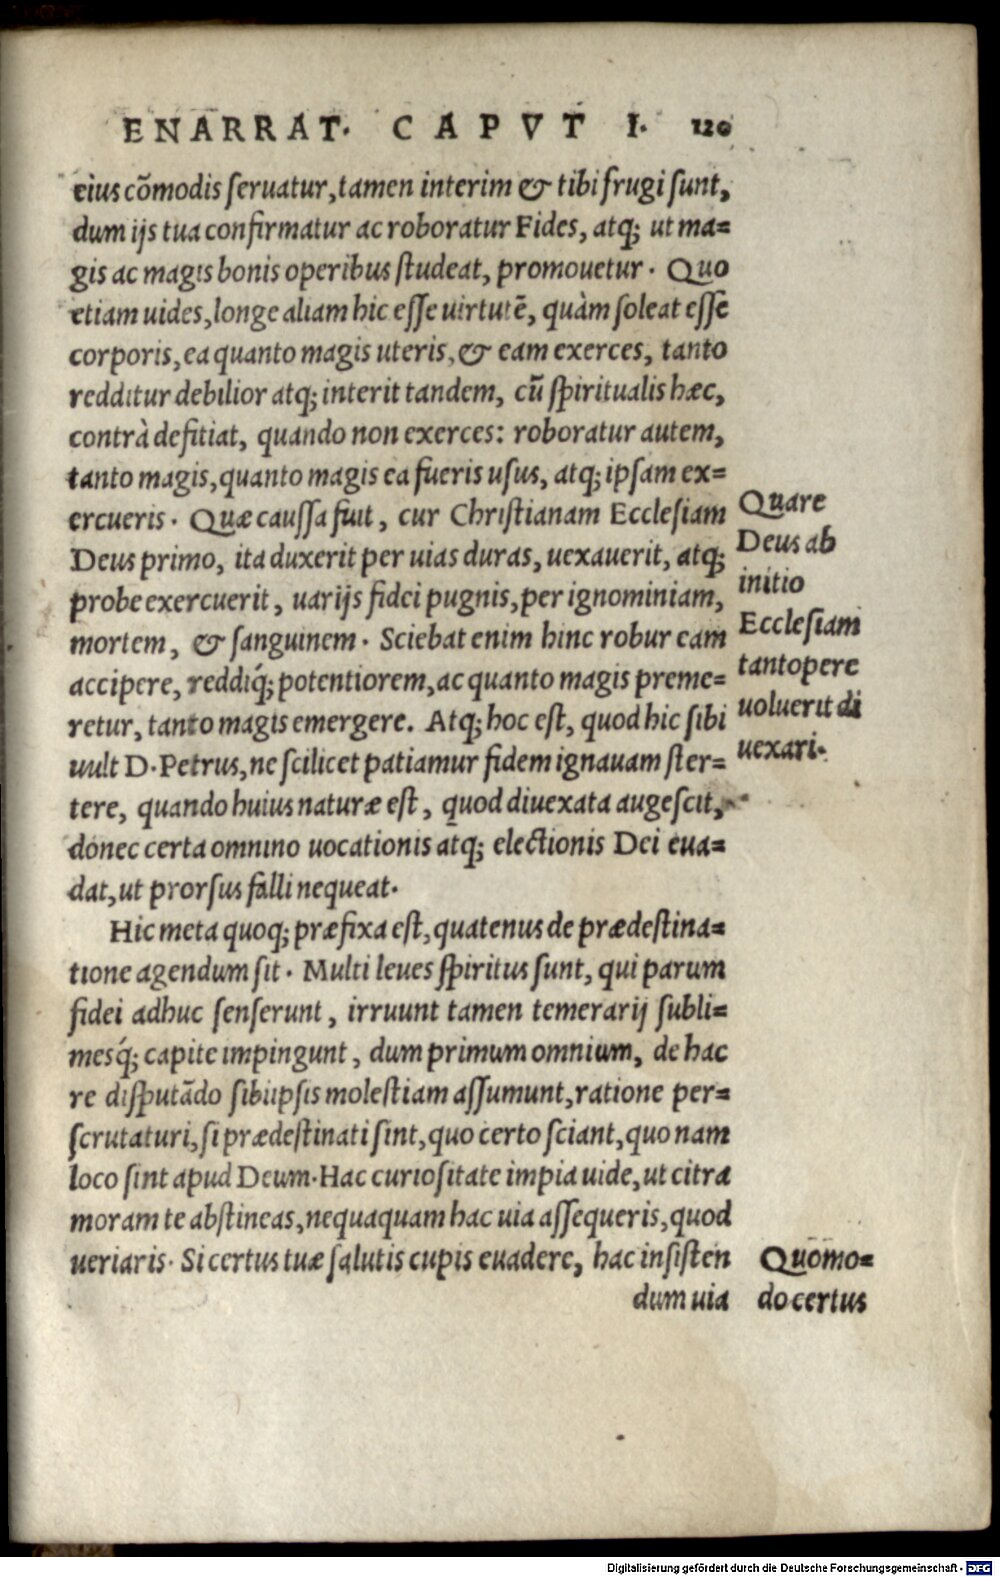 ENARRAT. CAPVT I. 120
eius cõmodis ſeruatur, tamen interim & tibi frugi ſunt,
dum ijs tua confirmatur ac roboratur Fides, atq; ut ma=
gis ac magis bonis operibus ſtudeat, promouetur. Quo
etiam uides, longe aliam hic eſſe uirtutẽ, quàm ſoleat eſſe
corporis, ea quanto magis uteris, & eam exerces, tanto
redditur debilior atq; interit tandem, cũ ſpiritualis hæc,
contrà defitiat, quando non exerces: roboratur autem,
tanto magis, quanto magis ea fueris uſus, atq; ipſam ex=
ercueris. Quæ cauſſa fuit, cur Chriſtianam Eccleſiam
Deus primo, ita duxerit per uias duras, uexauerit, atq;
probe exercuerit, uarijs fidei pugnis, per ignominiam,
mortem, & ſanguinem. Sciebat enim hinc robur eam
accipere, reddiq́; potentiorem, ac quanto magis preme=
retur, tanto magis emergere. Atq; hoc eſt, quod hic ſibi
uult D. Petrus, ne ſcilicet patiamur fidem ignauam ſter=
tere, quando huius naturæ eſt, quod diuexata augeſcit,
donec certa omnino uocationis atq; electionis Dei eua=
dat, ut prorſus falli nequeat.
Quare
Deus ab
initio
Eccleſiam
tantopere
uoluerit di
uexari.
Hic meta quoq; præfixa eſt, quatenus de prædeſtina=
tione agendum ſit. Multi leues ſpiritus ſunt, qui parum
fidei adhuc ſenſerunt, irruunt tamen temerarij ſubli=
mesq́; capite impingunt, dum primum omnium, de hac
re diſputãdo ſibiipſis moleſtiam aſſumunt, ratione per=
ſcrutaturi, ſi prædeſtinati ſint, quo certo ſciant, quo nam
loco ſint apud Deum. Hac curioſitate impia uide, ut citra
moram te abſtineas, nequaquam hac uia aſſequeris, quod
ueriaris. Si certus tuæ ſalutis cupis euadere, hac inſiſten
dum uia
Quomo=
do certus
Digitalisierung gefördert durch die Deutsche Forschungsgemeinschaft - DFG